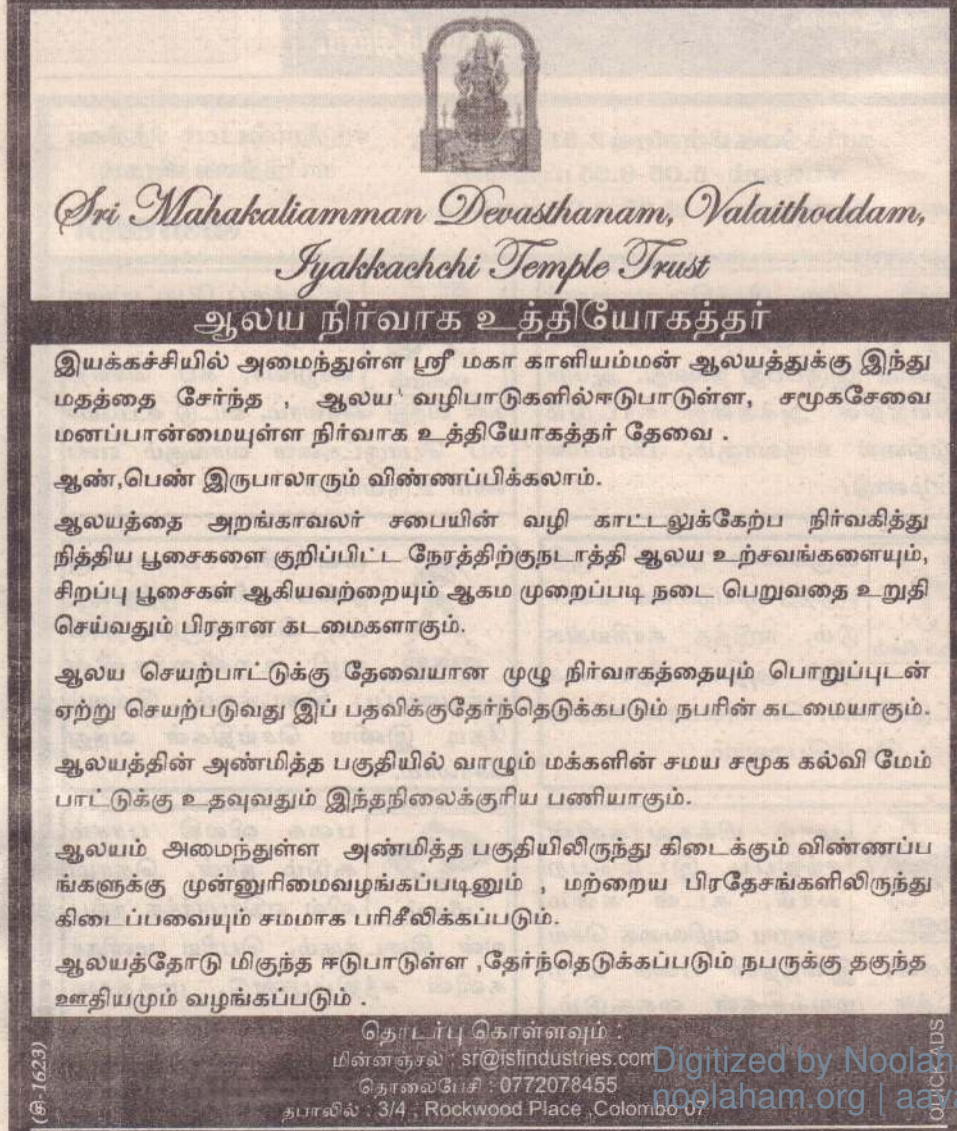 Sri Mahakaliamman Devasthanam, Valaithoddam,
Iyakkachchi Temple Trust
ஆலய நிர்வாக உத்தியோகத்தர்
இயக்கச்சியில் அமைந்துள்ள ஸ்ரீ மகா காளியம்மன் ஆலயத்துக்கு இந்து
மதத்தை சேர்ந்த , ஆலய வழிபாடுகளில்ஈடுபாடுள்ள, சமூகசேவை
மனப்பான்மையுள்ள நிர்வாக உத்தியோகத்தர் தேவை .
ஆண்,பெண் இருபாலாரும் விண்ணப்பிக்கலாம்.
ஆலயத்தை அறங்காவலர் சபையின் வழி காட்டலுக்கேற்ப நிர்வகித்து
நித்திய பூசைகளை குறிப்பிட்ட நேரத்திற்குநடாத்தி ஆலய உற்சவங்களையும்,
சிறப்பு பூசைகள் ஆகியவற்றையும் ஆகம முறைப்படி நடை பெறுவதை உறுதி
செய்வதும் பிரதான கடமைகளாகும்.
ஆலய செயற்பாட்டுக்கு தேவையான முழு நிர்வாகத்தையும் பொறுப்புடன்
ஏற்று செயற்படுவது இப் பதவிக்குதேர்ந்தெடுக்கபடும் நபரின் கடமையாகும்.
ஆலயத்தின் அண்மித்த பகுதியில் வாழும் மக்களின் சமய சமூக கல்வி மேம்
பாட்டுக்கு உதவுவதும் இந்தநிலைக்குரிய பணியாகும்.
ஆலயம் அமைந்துள்ள அண்மித்த பகுதியிலிருந்து கிடைக்கும் விண்ணப்ப
ங்களுக்கு முன்னுரிமைவழங்கப்படினும் , மற்றைய பிரதேசங்களிலிருந்து
கிடைப்பவையும் சமமாக பரிசீலிக்கப்படும்.
ஆலயத்தோடு மிகுந்த ஈடுபாடுள்ள ,தேர்ந்தெடுக்கப்படும் நபருக்கு தகுந்த
ஊதியமும் வழங்கப்படும் .
தொடர்பு கொள்ளவும் :
மின்னஞ்சல் : sr@isfindustries.com
தொலைபேசி : 0772078455
தபாலில் : 3/4 , Rockwood Place ,Colombo 07
(இ-1623)
QUICK ADS
Digitized by Noolah
noolaham.org | aava